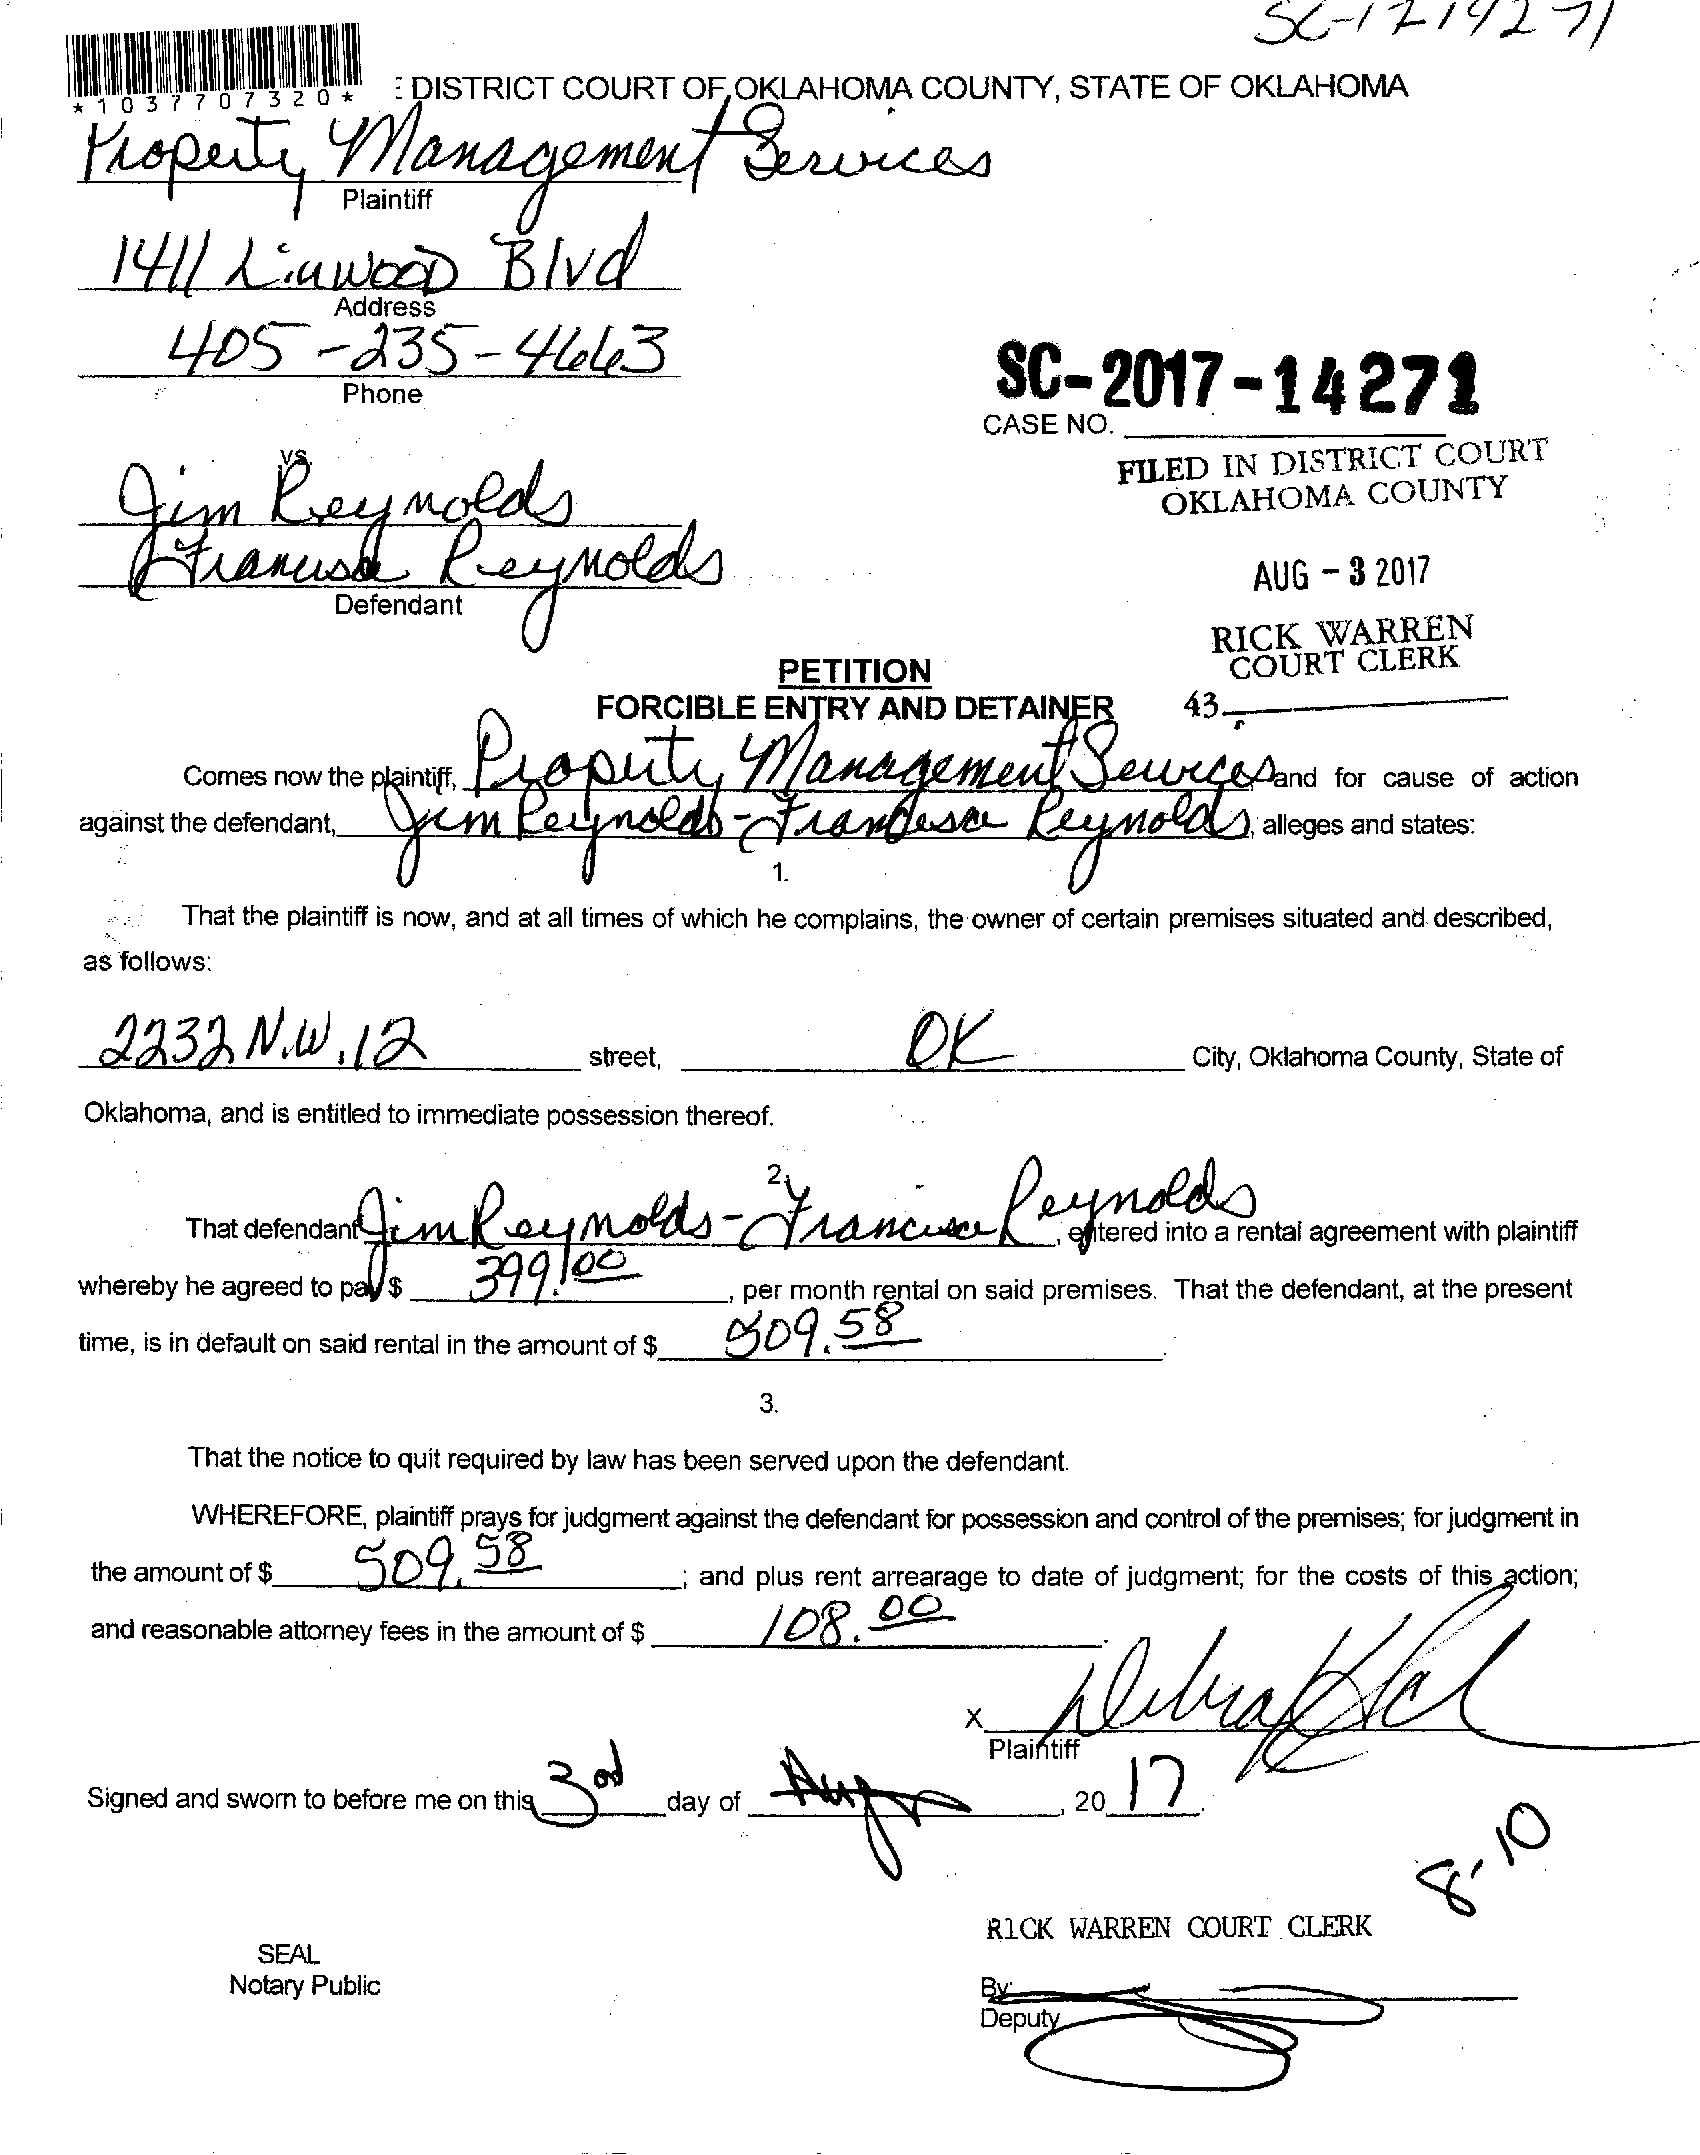 SC-1714271
*1037707320*
: DISTRICT COURT OF OKLAHOMA COUNTY, STATE OF OKLAHOMA
Property Management Services
Plaintiff
1411 Linwood Blvd
Address
405-235-4663
Phone
SC-2017-14271
CASE NO.
FILED IN DISTRICT COURT
OKLAHOMA COUNTY
vs
Jim Reynolds
Francisca Reynolds
Defendant
AUG - 3 2017
RICK WARREN
COURT CLERK
43
PETITION
FORCIBLE ENTRY AND DETAINER
Comes now the plaintiff, Property Management Services and for cause of action
against the defendant, Jim Reynolds - Francisca Reynolds, alleges and states:
1.
That the plaintiff is now, and at all times of which he complains, the owner of certain premises situated and described,
as follows:
2232 N.W. 12 street, OK City, Oklahoma County, State of
Oklahoma, and is entitled to immediate possession thereof.
2.
That defendant Jim Reynolds - Francisca Reynolds, entered into a rental agreement with plaintiff
whereby he agreed to pay $ 399.00, per month rental on said premises. That the defendant, at the present
time, is in default on said rental in the amount of $ 509.58.
3.
That the notice to quit required by law has been served upon the defendant.
WHEREFORE, plaintiff prays for judgment against the defendant for possession and control of the premises; for judgment in
the amount of $ 509.58; and plus rent arrearage to date of judgment; for the costs of this action;
and reasonable attorney fees in the amount of $ 108.00.
X Debra
Plaintiff
Signed and sworn to before me on this 3rd day of Aug, 2017.
8-10
RICK WARREN COURT CLERK
SEAL
Notary Public
By:
Deputy